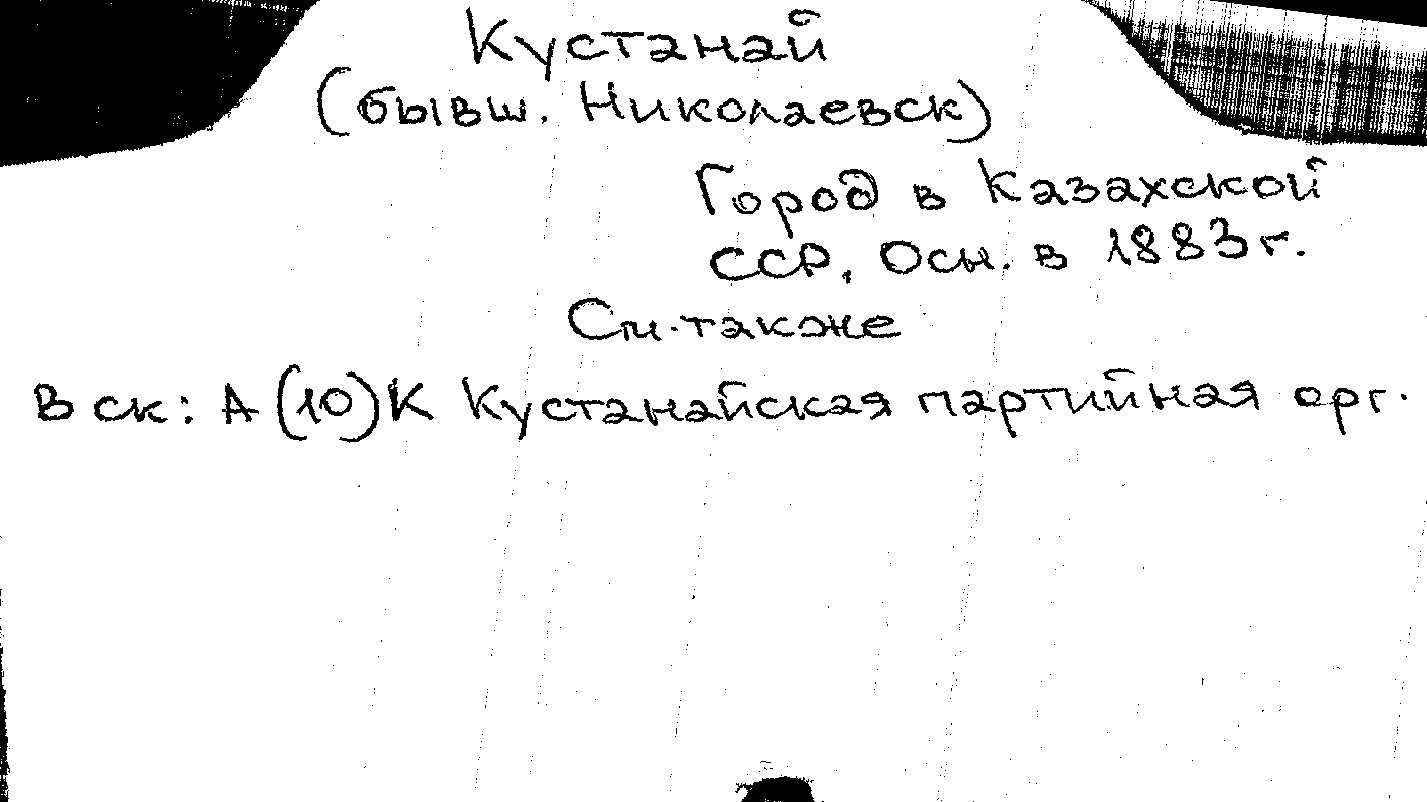 Кустанай
(бывш. Николаевск)
Город в Казахской
ССР. Осн. в 1883 г.
См. также
В ск: А(10)К Кустанайская партийная орг.